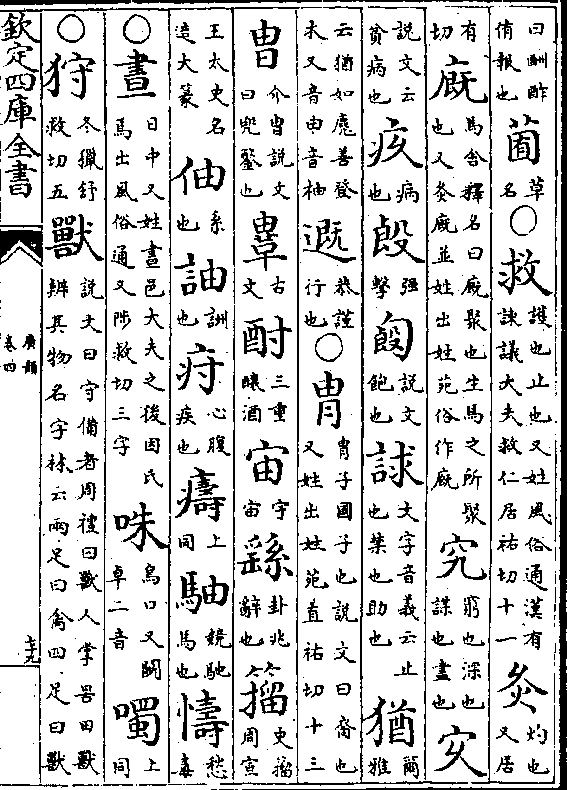 曰酬酢侑報也莤草名○救護也止也又姓風俗通漢有諫議大夫救仁居祐切十一灸灼也又居
有切廐馬舍釋名曰廐聚也生馬之所聚也又灸廐並姓出姓苑俗作廐究窮也深也謀也盡也㝌
說文云貧病也疚病也㲃强擊匓說文飽也䛮文字音義云止也禁也助也猶爾雅
云猶如麂善登木又音由音柚恭謹行也○胄胄子國子也說文曰裔也又姓出姓苑直祐切十三
冑介冑說文曰兜鍪也古文酎三重釀酒宙宇宙繇卦兆辭也籀史籀周宣
王太史名造大篆伷系也䛆訓也疛心腹疾也㿒上同駎競馳馬也懤愁毒
○晝日中又姓晝邑大夫之後因氏焉出風俗通又陟救切三字咮鳥口又鬭卓二音噣上同
○狩冬獵舒救切五獸說文曰守備者周禮曰獸人掌罟田獸辨其物名字林云兩足曰禽四足曰獸
欽定四庫全書
廣韻
卷四
七十九